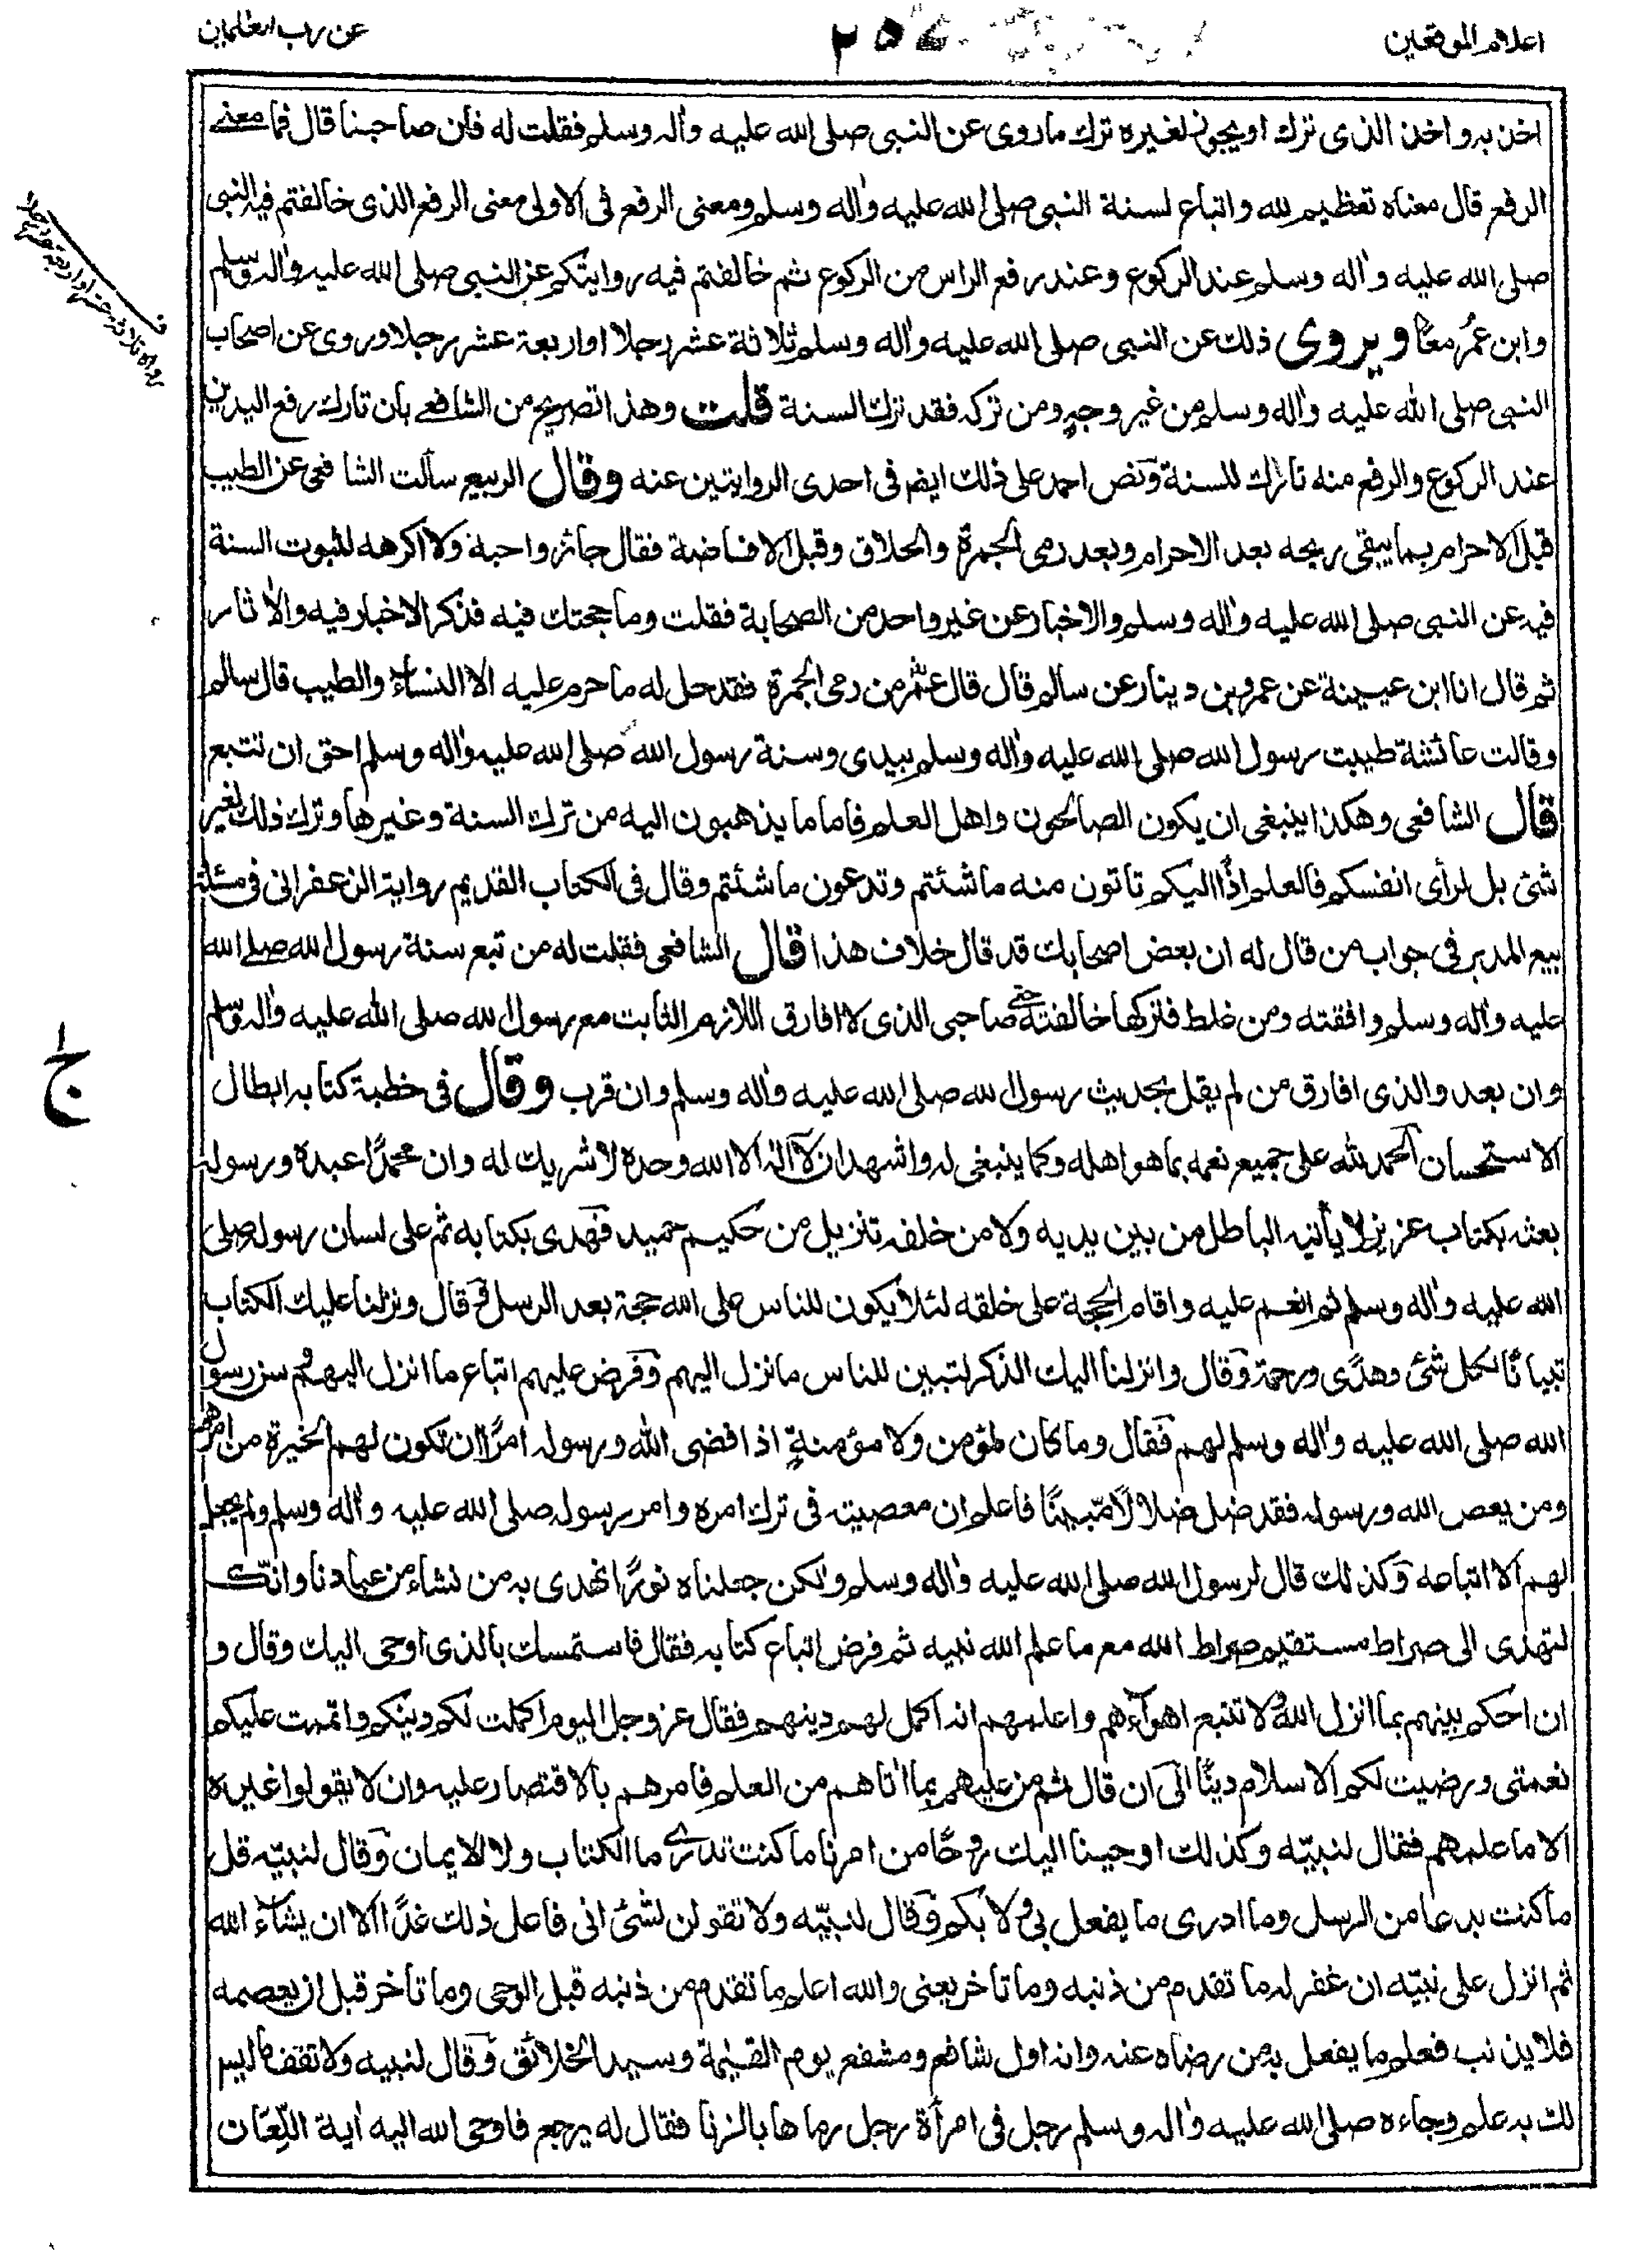 اعلام الموقعين
٢٥٤
عن رب العلمين
اخذ به واخذ الذى ترك او يجوز لغيره ترك ما روى عن النبى صلى الله عليه واٰله وسلم فقلت له فان صاحبنا قال فما معنى
الرفع قال معناه تعظيم لله واتباع لسنة النبى صلى الله عليه واٰله وسلم ومعنى الرفع فى الاولى معنى الرفع الذى خالفتم فيه النبى
صلى الله عليه واٰله وسلم عند الركوع وعند رفع الراس من الركوع ثم خالفتم فيه روايتكم عن النبى صلى الله عليه واٰله وسلم
وابن عمر معًا ويروى ذلك عن النبى صلى الله عليه واٰله وسلم ثلاثة عشر رجلا او اربعة عشر رجلا وروى عن اصحاب
النبى صلى الله عليه واٰله وسلم من غير وجهٍ ومن تركه فقد ترك السنة قلت وهذا تصريح من الشافعے بان تارك رفع اليدين
عند الركوع والرفع منه تارك للسنة ونص احمد على ذلك ايضا فى احدى الروايتين عنه وقال الربيع سألت الشافعى عن الطيب
قبل الاحرام بما يبقى ريحه بعد الاحرام وبعد رمى الجمرة والحلاق وقبل الافاضة فقال جائز واحبه ولا اكرهه لثبوت السنة
فيه عن النبى صلى الله عليه واٰله وسلم والاخبار عن غير واحد من الصحابة فقلت وما حجتك فيه فذكر الاخبار فيه والاٰثار
ثم قال انا ابن عيينة عن عمرو بن دينار عن سالم قال قال عمر من رمى الجمرة فقد حل له ما حرم عليه الا النساء والطيب قال سالم
وقالت عائشة طيبت رسول الله صلى الله عليه واٰله وسلم بيدى وسنة رسول الله صلى الله عليه واٰله وسلم احق ان تتبع
قال الشافعى وهكذا ينبغى ان يكون الصالحون واهل العلم فاما ما يذهبون اليه من ترك السنة وغيرها وترك ذلك لغير
شئ بل لرأى انفسكم فالعلم اذًا اليكم تاتون منه ما شئتم وتدعون ما شئتم وقال فى الكتاب القديم رواية الزعفرانى فى مسئلة
بيع المدبر فى جواب من قال له ان بعض اصحابك قد قال خلاف هذا قال الشافعى فقلت له من تبع سنة رسول الله صلے الله
عليه واٰله وسلم وافقته ومن خلط فتركها خالفته حتى صاحبى الذى لا افارق اللازم الثابت مع رسول الله صلى الله عليه واٰله وسلم
وان بعد والذى افارق من لم يقل بحديث رسول لله صلى الله عليه واٰله وسلم وان قرب وقال فى خطبة كتابه ابطال
الاستحسان الحمد لله على جميع نعمه بما هو اهله وكما ينبغى له واشهد ان لا اله الا الله وحده لا شريك له وان محمدًا عبده ورسوله
بعثه بكتاب عزيز لا يأتيه الباطل من بين يديه ولا من خلفه تنزيل من حكيم حميد فهدى بكتابه ثم على لسان رسوله صلى
الله عليه واٰله وسلم ثم انعم عليه واقام الحجة على خلقه لئلا يكون للناس على الله حجة بعد الرسل وقال ونزلنا عليك الكتاب
تبيانًا لكل شئ وهدًى ورحمة وقال وانزلنا اليك الذكر لتبين للناس ما نزل اليهم وفرض عليهم اتباع ما انزل اليهم وسن رسول
الله صلى الله عليه واٰله وسلم لهم فقال وما كان لمؤمن ولا مؤمنةٍ اذا قضى الله ورسوله امرًا ان تكون لهم الخيرة من امرهم
ومن يعص الله ورسوله فقد ضل ضلالًا مّبينًا فاعلم ان معصيته فى ترك امره وامر رسوله صلى الله عليه واٰله وسلم ولم يجعل
لهم الا اتباعه وكذلك قال لرسول الله صلى الله عليه واٰله وسلم ولكن جعلناه نورًا نهدى به من نشاء من عبادنا وانك
لتهدى الى صراط مستقيم صراط الله مع ما علم الله نبيه ثم فرض اتباع كتابه فقال فاستمسك بالذى اوحى اليك وقال و
ان احكم بينهم بما انزل الله ولا تتبع اهوآءهم واعلمهم انه اكمل لهم دينهم فقال عز وجل اليوم اكملت لكم دينكم واتممت عليكم
نعمتى ورضيت لكم الاسلام دينًا الى ان قال ثم من عليهم بما اٰتاهم من العلم فامرهم بالاقتصار عليه وان لا يقولوا غيره
الا ما علمهم فقال لنبيّه وكذلك اوحينا اليك روحًا من امرنا ما كنت تدرى ما الكتاب ولا الايمان وقال لنبيّه قل
ما كنت بدعا من الرسل وما ادرى ما يفعل بى ولا بكم وقال لنبيّه ولا تقولن لشئ انى فاعل ذلك غدًا الا ان يشآء الله
ثم انزل على نبيّه ان غفر له ما تقدم من ذنبه وما تأخر يعنى والله اعلم ما تقدم من ذنبه قبل الوحى وما تأخر قبل ان يعصمه
فلا يذنب فعلم ما يفعل به من رضاه عنه وانه اول شافع ومشفع يوم القيٰمة وسيد الخلائق وقال لنبيه ولا تقف ما ليس
لك به علم وجاءه صلى الله عليه واٰله وسلم رجل فى امرأة رجل رماها بالزنا فقال له يرجع فاوحى الله اليه اٰية اللّعان